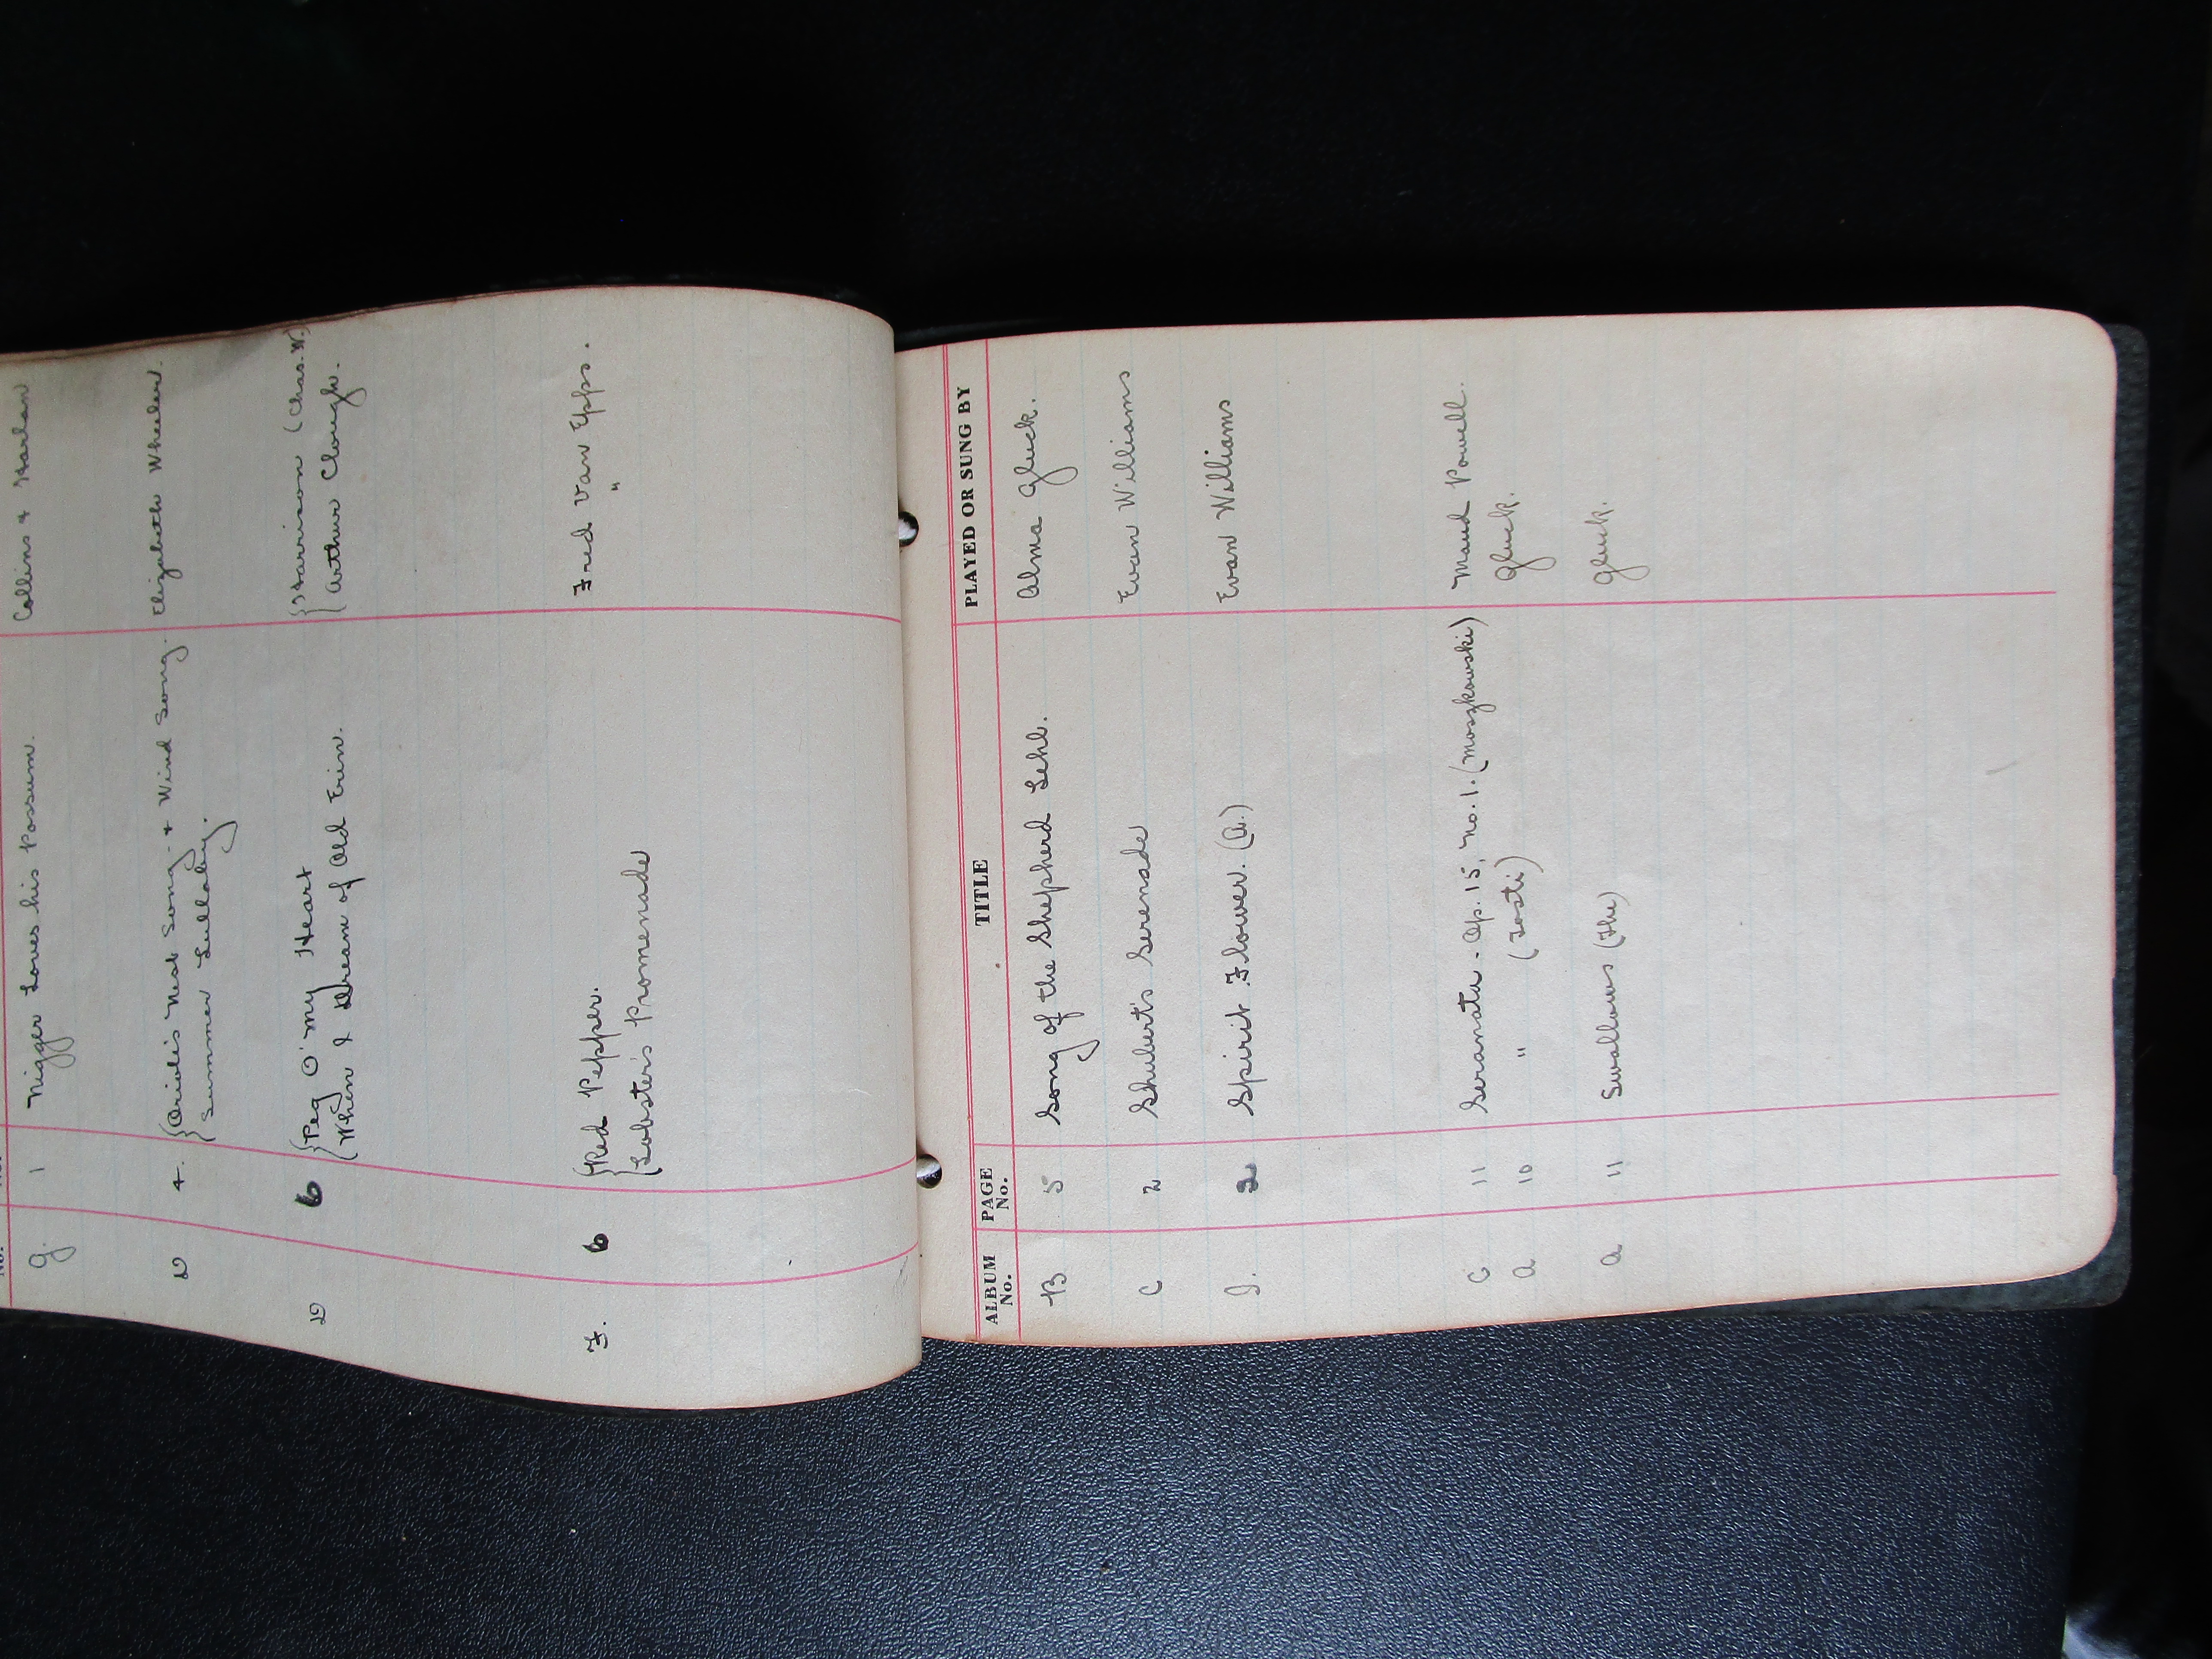 No.
g. 1 Nigger Loves his Possum. Collins & Harlan
D 4. {Oriole's Nest Song. + Wind Song. Elizabeth Wheeler.
{Summer Lullaby.
D 6 {Peg O' my Heart {Harrison (Chas. W.)
{When I Dream of Old Erin. {Arthur Clough.
F. 6 {Red Pepper. Fred Van Epps.
{Lobster's Promenade "
ALBUM No. PAGE No. TITLE PLAYED OR SUNG BY
B 5 Song of the Shepherd Lehl. Alma Gluck.
C 2 Shubert's Serenade Evan Williams
I. 2 Spirit Flower. (A.) Evan Williams
C 11 Seranata - Op. 15, No. 1. (Moszkowski) Maud Powell.
a 10 " (Tosti) Gluck.
a 11 Swallows (The) Gluck.